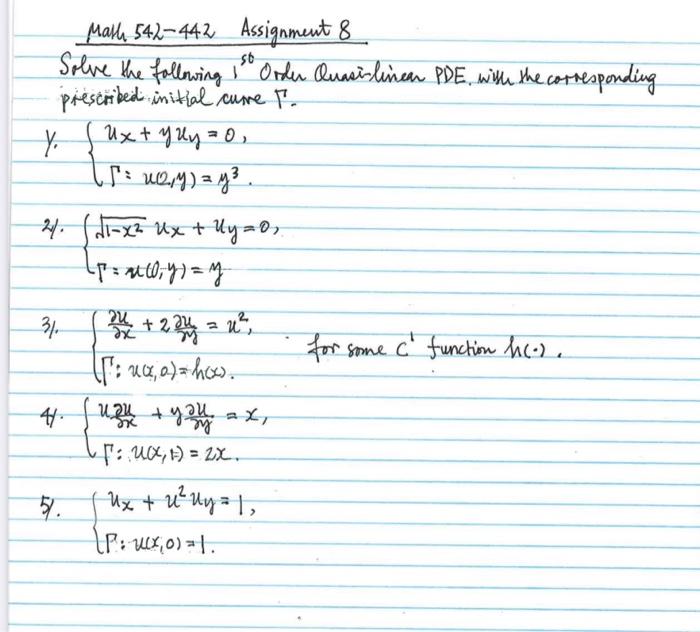 Math 542-442 Assignment 8
Solve the following 1st Order Quasi-linear PDE. with the corresponding
prescribed initial curve Γ.
1/. { ux + y uy = 0,
Γ: u(0,y) = y³.
2/. { √1-x² ux + uy = 0,
Γ: u(0,y) = y
3/. { ∂u/∂x + 2 ∂u/∂y = u²,
Γ: u(x,0) = h(x).
for some C¹ function h(·).
4/. { u ∂u/∂x + y ∂u/∂y = x,
Γ: u(x,1) = 2x.
5/. { ux + u² uy = 1,
Γ: u(x,0) = 1.